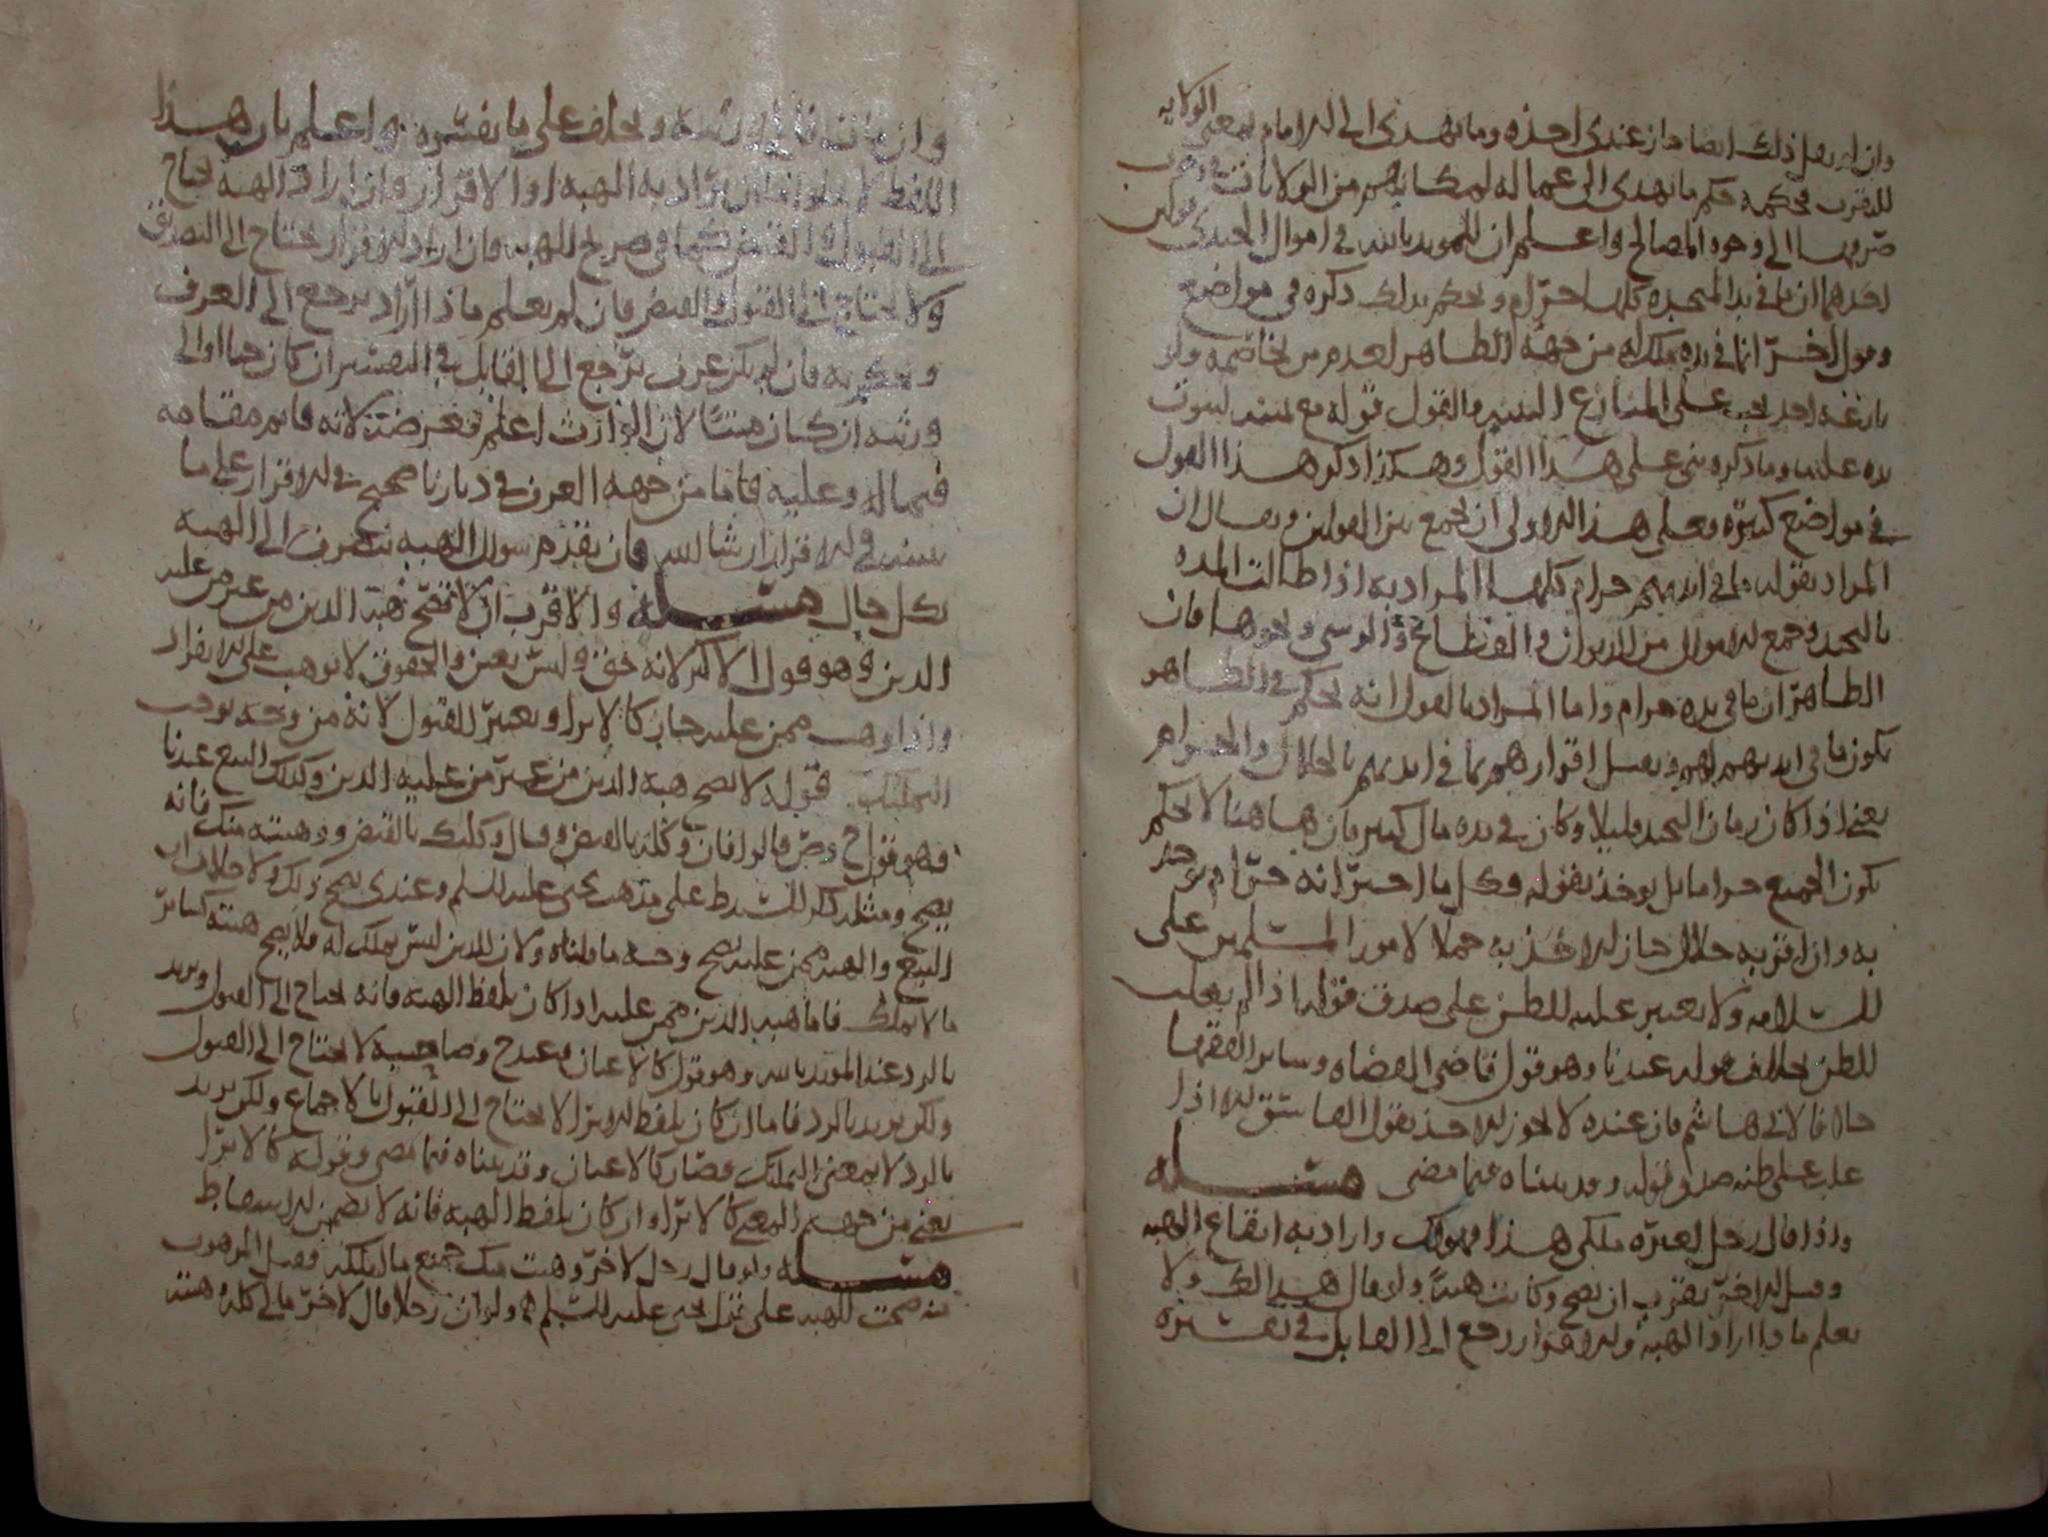 وان لم يقبل ذلك ايضا جاز عندي اخذه وما يهدى الى الامام لمعنى الولايه
للتقرب فحكمه حكم ما يهدى الى عماله لمكانهم من الولايات في وجوب
صرفها الى وجوه المصالح واعلم ان للمويد بالله في اموال الجندي قولين
احدهما ان ما في يد الجنديه كلها حرام ويحكم بذلك ذكره في مواضع
وقول اخر انما في يده ملك له من جهة الظاهر لعدم من يخاصمه ولو
نازعه احد يجب على المنازع البينه والقول قوله مع يمينه لثبوت
يده عليه وما ذكره بنى على هذا القول وهكذا ذكر هذا القول
في مواضع كثيره فعلى هذا الاولى ان يجمع بين القولين ويقال ان
المراد بقوله ما في ايديهم حرام كلها المراد به اذا طالت المده
بالتجند وجمع الاموال من الديوان والقطائح و الموسى ونحوها فان
الظاهر ان ما في يده حرام واما المراد بالقول انه يحكم في الظاهر
بكون ما في ايديهم لهم ويقبل اقرارهم بما في ايديهم بالحلال والحرام
يعني اذا كان زمان التجند قليلا وكان في يده مال كثير فان هاهنا لا يحكم
بكون الجميع حراما بل يوخذ بقوله وكل ما اخبر انه حرام لم
به وان اقر به حلال جاز الاخذ به حملا لامور المسلمين على
السلامه ولا يعتبر عليه الظن على صدق قوله اذا لم يغلب
الظن بخلاف قوله عندنا وهو قول قاضي القضاه وساير الفقها
خلافا لابي هاشم فان عنده لا يجوز الاخذ بقول الفاسق الا اذا
غلب على ظنه صدق قوله وقد بيناه فيما مضى مسله
واذا قال رجل لغيره ملكي هذا فهو لك واراد به ايقاع الهبه
وقبل الاخر يقرب ان يصح وكانت هبة ولو قال هذا لك ولا
يعلم ماذا اراد الهبه والاقرار رجع الى القايل في تفسيره
وان مات فالى ورثته ويحلف على ما يفسره واعلم بان هذا
اللفظ لا يخلو اما ان يراد به الهبه او الاقرار وان اراد الهبه يحتاج
الى القبول والقبض كما في صريح الهبه وان اراد الاقرار يحتاج الى التصديق
ولا يحتاج الى القبول والقبض فان لم يعلم ماذا اراد يرجع الى العرف
ويحكم به فان لم يكن عرف يرجع الى القايل في التفسير ان كان حيا او الى
ورثته ان كان ميتا لان الوارث اعلم بغرضه لانه قايم مقامه
فيما له وعليه فاما من جهة العرف في ديارنا صحيح في الاقرار على ما
نبينه في الاقرار ان شا الله فان تقدم سوال الهبه ينصرف الى الهبه
بكل حال مسله والاقرب ان لا تصح هبة الدين من غير من عليه
الدين وهو قول الاكثر لانه حق وليس بعين والحقوق لا توهب على الانفراد
واذا وهب ممن عليه جاز كالابرا ويعتبر القبول لانه من وجه يوجب
التمليك قوله لا يصح هبه الدين من غير من عليه الدين وكذلك البيع عندنا
فهو قول ح وص قالوا فان وكله بالقبض وقال وكلتك بالقبض ووهبته منك فانه
يصح ومثله ذكر الشرط على مذهب يحيى عليه السلم وعندي يصح ذلك ولا خلاف ان
البيع والهبه ممن عليه يصح وجه ما قلناه ولان الدين ليس يملك له فلا يصح هبته كساير
ما لا يملك فاما هبه الدين ممن عليه اذا كان بلفظ الهبه فانه يحتاج الى القبول ويريد
بالرد عند المويد بالله وهو قول كالاعيان وعند ح وصاحبيه لا يحتاج الى القبول
ولكن يريد بالرد فاما ان كان بلفظ الابرا لا يحتاج الى القبول بالاجماع ولكن يريد
بالرد لا بمعنى التمليك فصار كالاعيان وقد بيناه فيما مضى وقوله كالابرا
يعني من جهة المعنى كالابرا وان كان بلفظ الهبه فانه لا يضمن الاسقاط
مسله ولو قال رجل لاخر وهبت منك جميع ما املكه فقبل الموهوب
منه صحت الهبه على قول يحيى عليه السلم ولو ان رجلا قال لاخر مالي كله وهبته